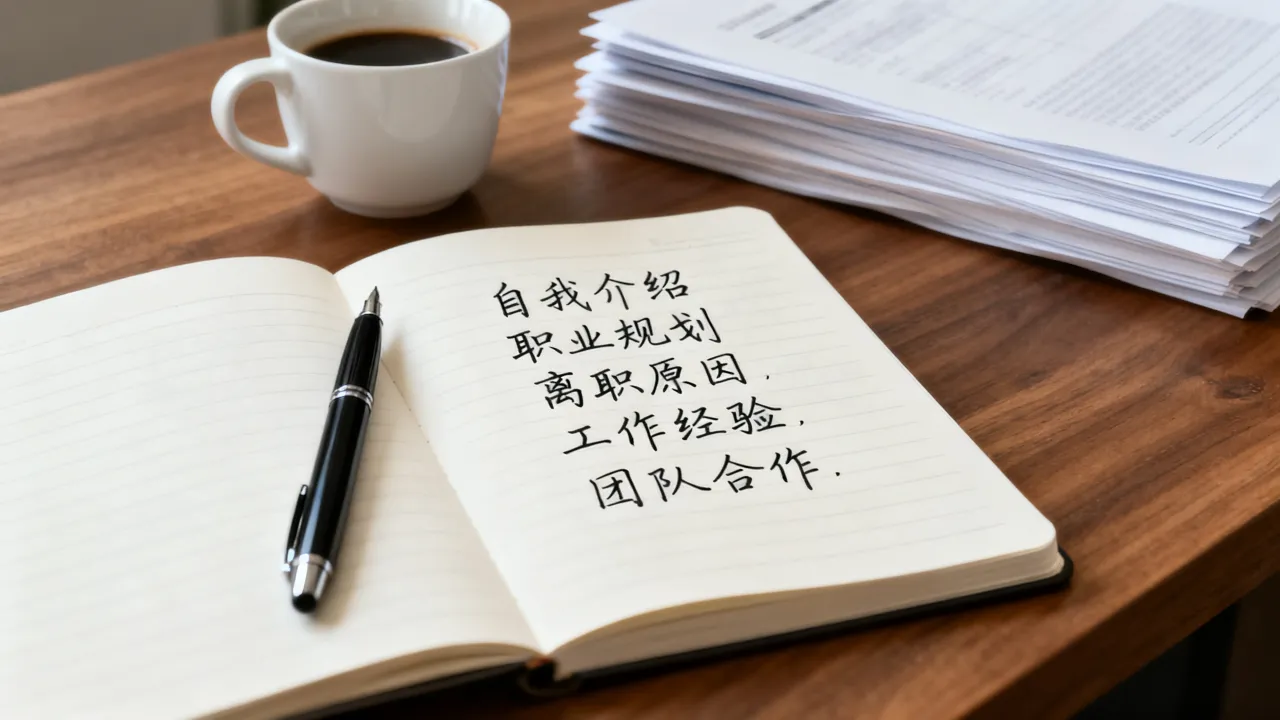 自我介绍
职业规划
离职原因.
工作经验.
团队合作.